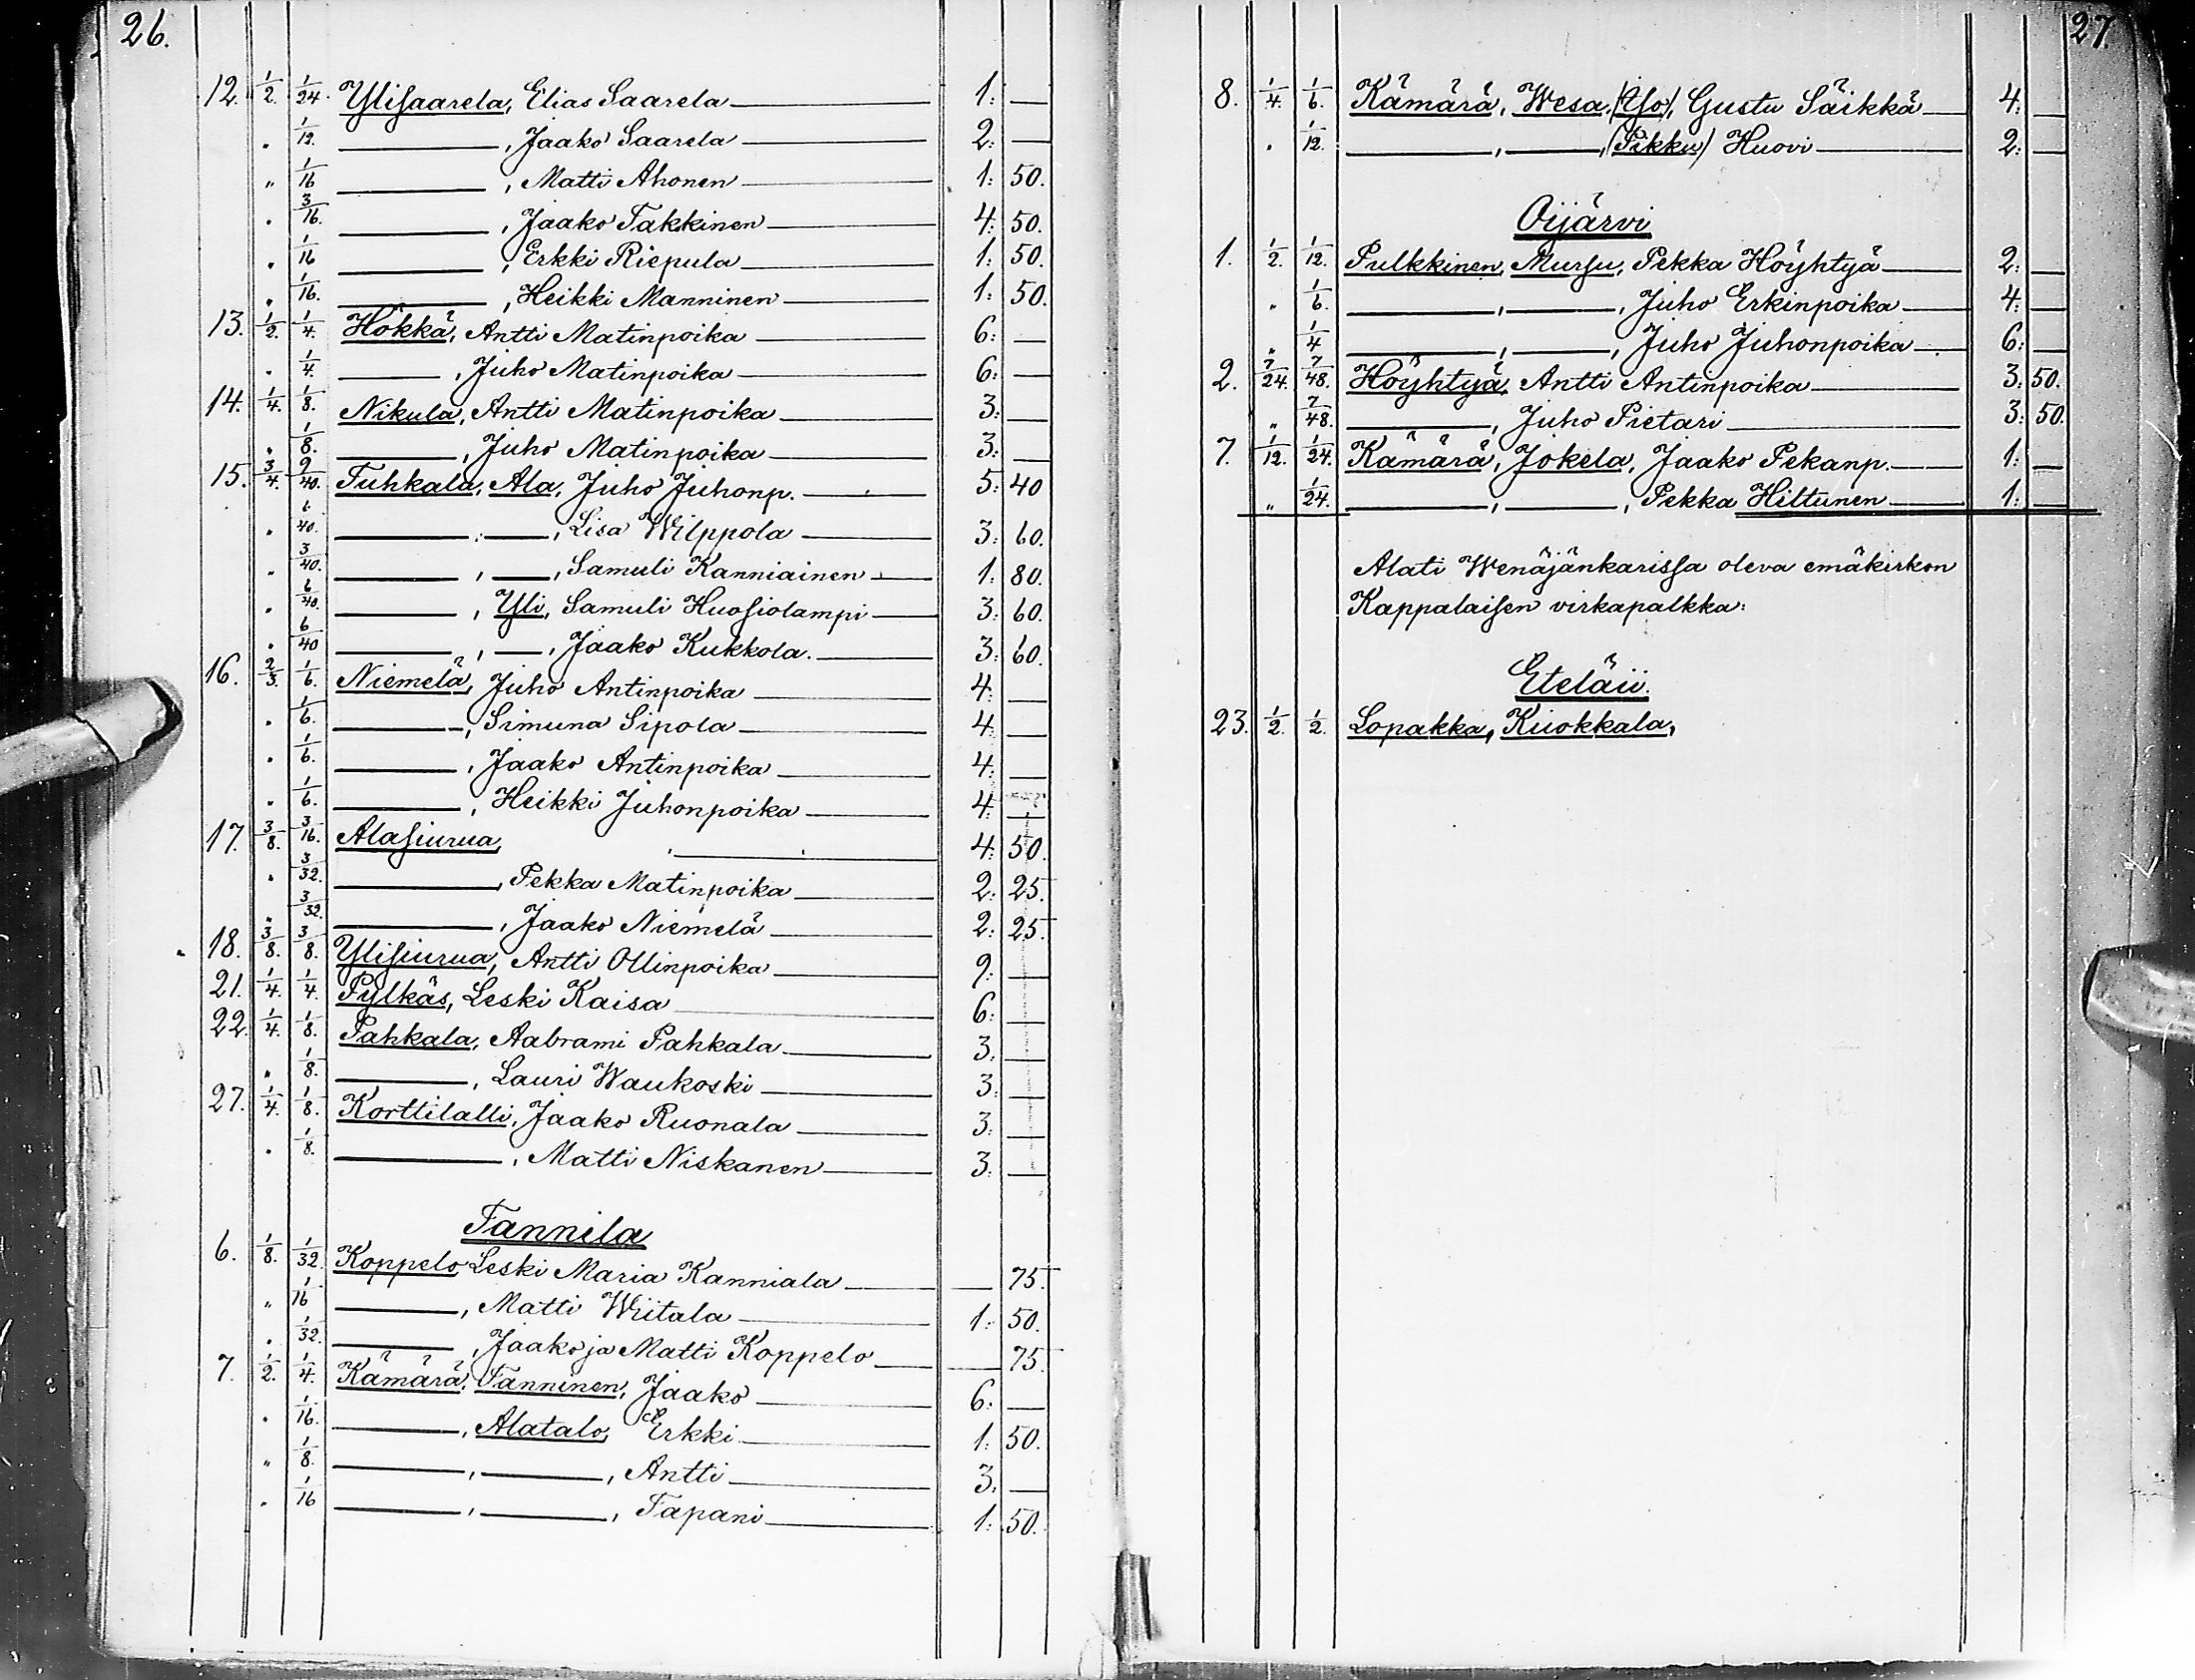 26.
12. 1/2. 1/24. Ylisaarela, Elias Saarela — 1: —
" 1/12. — , Jaako Saarela — 2: —
" 1/16 — , Matti Ahonen — 1: 50.
" 3/16. — , Jaako Takkinen — 4: 50.
" 1/16 — , Erkki Riepula — 1: 50.
" 1/16. — , Heikki Manninen — 1: 50.
13. 1/2. 1/4. Hökkä, Antti Matinpoika — 6: —
" 1/4. — , Juho Matinpoika — 6: —
14. 1/4. 1/8. Nikula, Antti Matinpoika — 3: —
" 1/8. — , Juho Matinpoika — 3: —
15. 3/4. 9/40. Tuhkala, Ala, Juho Juhonp. — 5: 40
" 6/40. — , — , Lisa Wilppola — 3: 60.
" 3/40. — , — , Samuli Kanniainen — 1: 80.
" 6/40. — , Yli, Samuli Huosiolampi — 3: 60.
" 6/40 — , — , Jaako Kukkola. — 3: 60.
16. 2/3. 1/6. Niemelä, Juho Antinpoika — 4: —
" 1/6. — , Simuna Sipola — 4: —
" 1/6. — , Jaako Antinpoika — 4: —
" 1/6. — , Heikki Juhonpoika — 4: —
17. 3/8. 3/16. Alasiurua, — 4: 50.
" 3/32. — , Pekka Matinpoika — 2: 25.
" 3/32. — , Jaako Niemelä — 2: 25.
18. 3/8. 3/8. Ylisiurua, Antti Ollinpoika — 9: —
21. 1/4. 1/4. Pylkäs, Leski Kaisa — 6: —
22. 1/4. 1/8. Pahkala, Aabrami Pahkala — 3: —
" 1/8. — , Lauri Waukoski — 3: —
27. 1/4. 1/8. Korttilalli, Jaako Ruonala — 3: —
" 1/8. — , Matti Niskanen — 3: —
Tannila
6. 1/8. 1/32. Koppelo Leski Maria Kanniala — — 75.
" 1/16 — , Matti Wiitala — 1: 50.
" 1/32. — , Jaako ja Matti Koppelo — — 75.
7. 1/2. 1/4. Kämärä, Tanninen, Jaako — 6: —
" 1/16. — , Alatalo, Erkki — 1: 50.
" 1/8. — , — , Antti — 3: —
" 1/16 — , — , Tapani — 1: 50.
27.
8. 1/4. 1/6. Kämärä, Wesa, (Iso), Gustu Säikkä — 4: —
" 1/12. — , — , (Pikku) Huovi — 2: —
Oijärvi
1. 1/2. 1/12. Pulkkinen, Mursu, Pekka Höyhtyä — 2: —
" 1/6. — , — , Juho Erkinpoika — 4: —
" 1/4 — , — , Juho Juhonpoika — 6: —
2. 7/24. 7/48. Höyhtyä, Antti Antinpoika — 3: 50.
" 7/48. — , Juho Pietari — 3: 50.
7. 1/12. 1/24. Kämärä, Jokela, Jaako Pekanp. — 1: —
" 1/24. — , — , Pekka Hiltunen — 1: —
Alati Wenäjänkarissa oleva emäkirkon
Kappalaisen virkapalkka:
Eteläii.
23. 1/2. 1/2. Lopakka, Kuokkala,